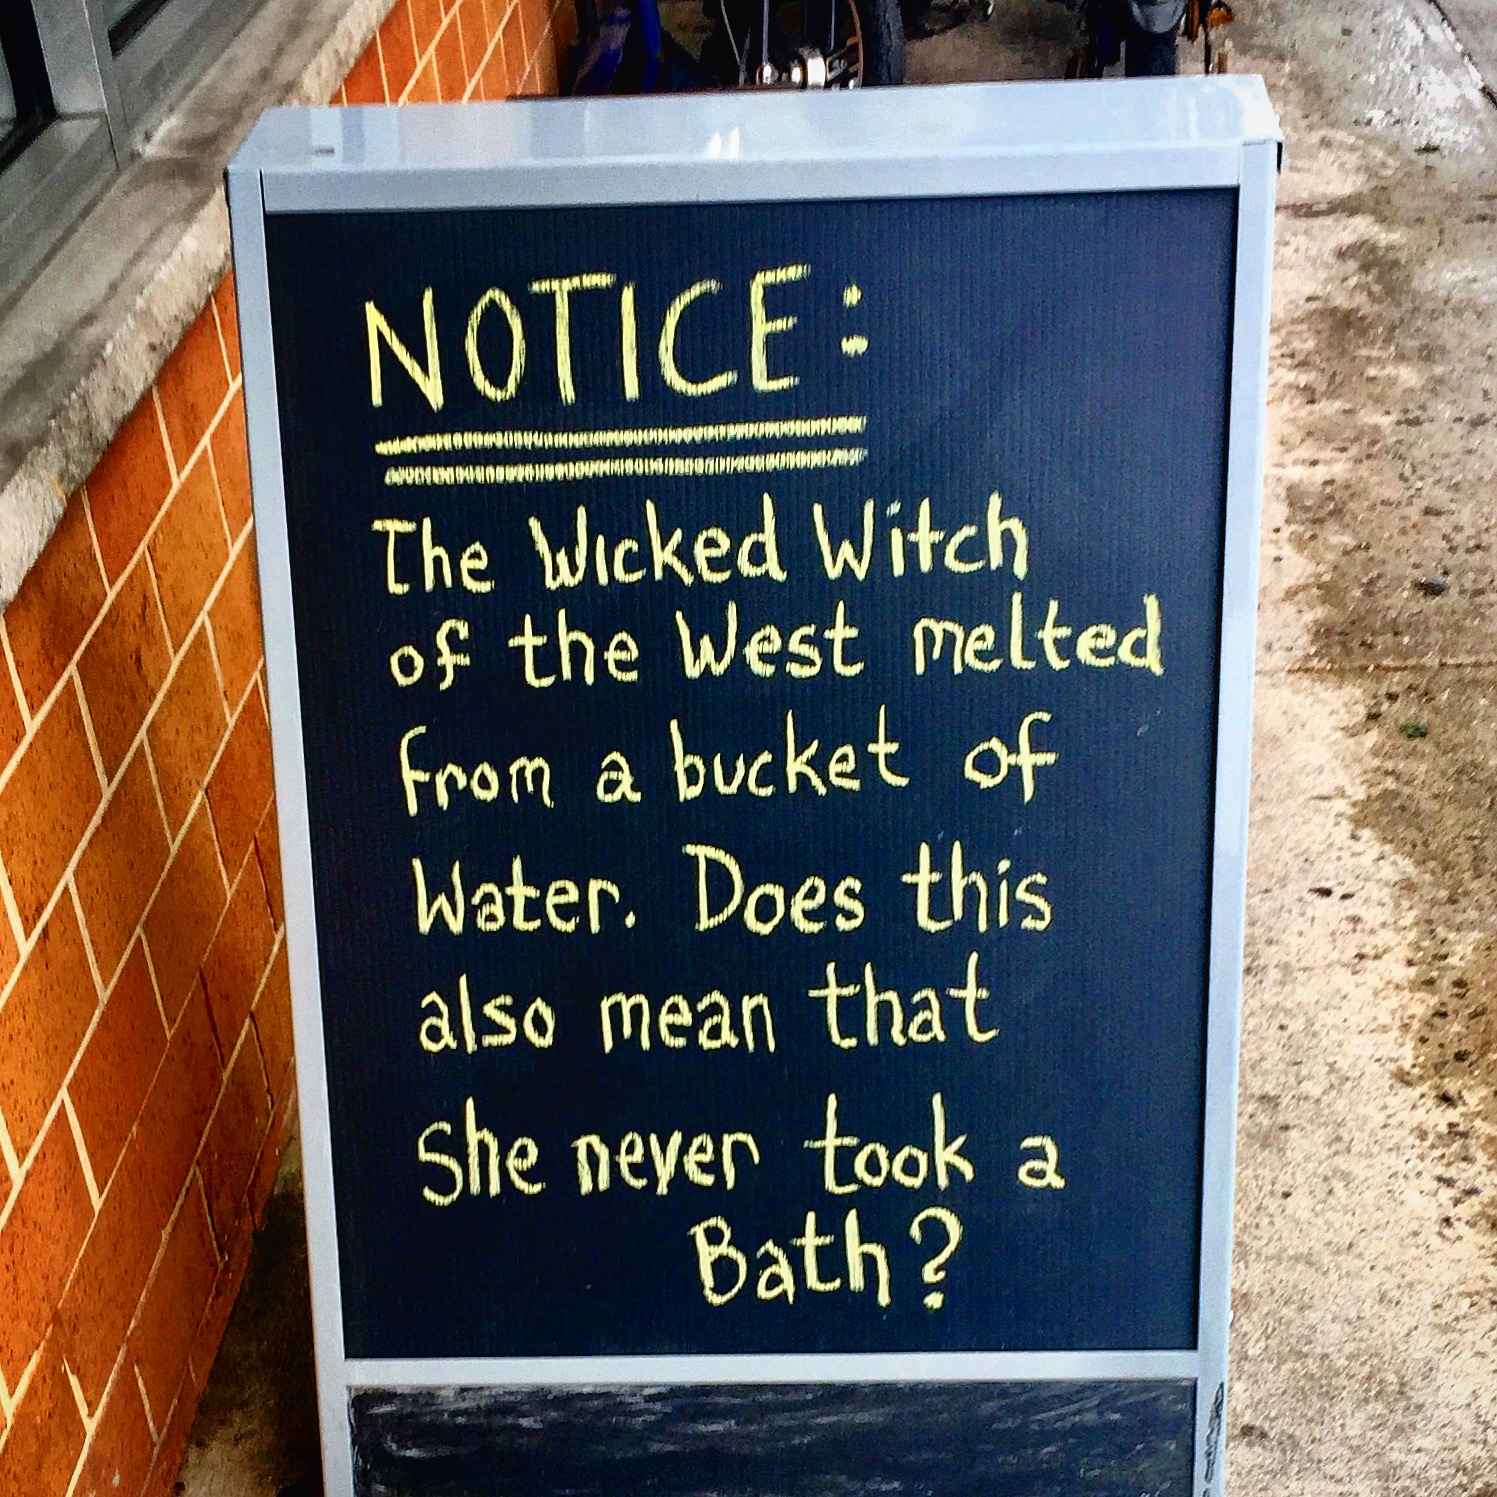 NOTICE:
The Wicked Witch
of the West melted
from a bucket of
Water. Does this
also mean that
She never took a
Bath?